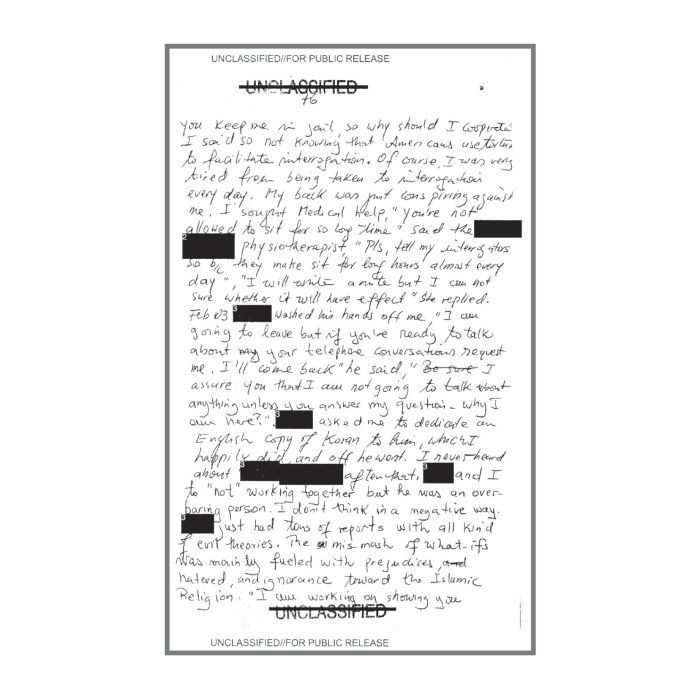 UNCLASSIFIED//FOR PUBLIC RELEASE
UNCLASSIFIED
76
you keep me in jail so why should I cooperate
I said so not knowing that Americans use torture
to facilitate interrogation. Of course, I was very
tired from being taken to interrogation
every day. My back was just conspiring against
me. I sought Medical help, "You're not
allowed to sit for so long time" said the
2
physiotherapist, "Pls, tell my interrogators
so b/c they make sit for long hours almost every
day", "I will write a note but I am not
sure whether it will have effect" She replied.
Feb 03 3 washed his hands off me, "I am
going to leave but if you're ready to talk
about my your telephone conversations request
me. I'll come back" he said, "Be sure I
assure you that I am not going to talk about
anything unless you answer my question - why I
am here?". 3 asked me to dedicate an
English copy of Koran to him, which I
happily did, and off he went. I never heard
about 3 after that. 3 and I
to "not" working together but he was an over-
baring person. I don't think in a negative way.
3 just had tons of reports with all kind
of evil theories. The mis mash of what-ifs
was mainly fueled with prejudices, and
hatered, and ignorance toward the Islamic
Religion. "I am working on showing you
UNCLASSIFIED
UNCLASSIFIED//FOR PUBLIC RELEASE